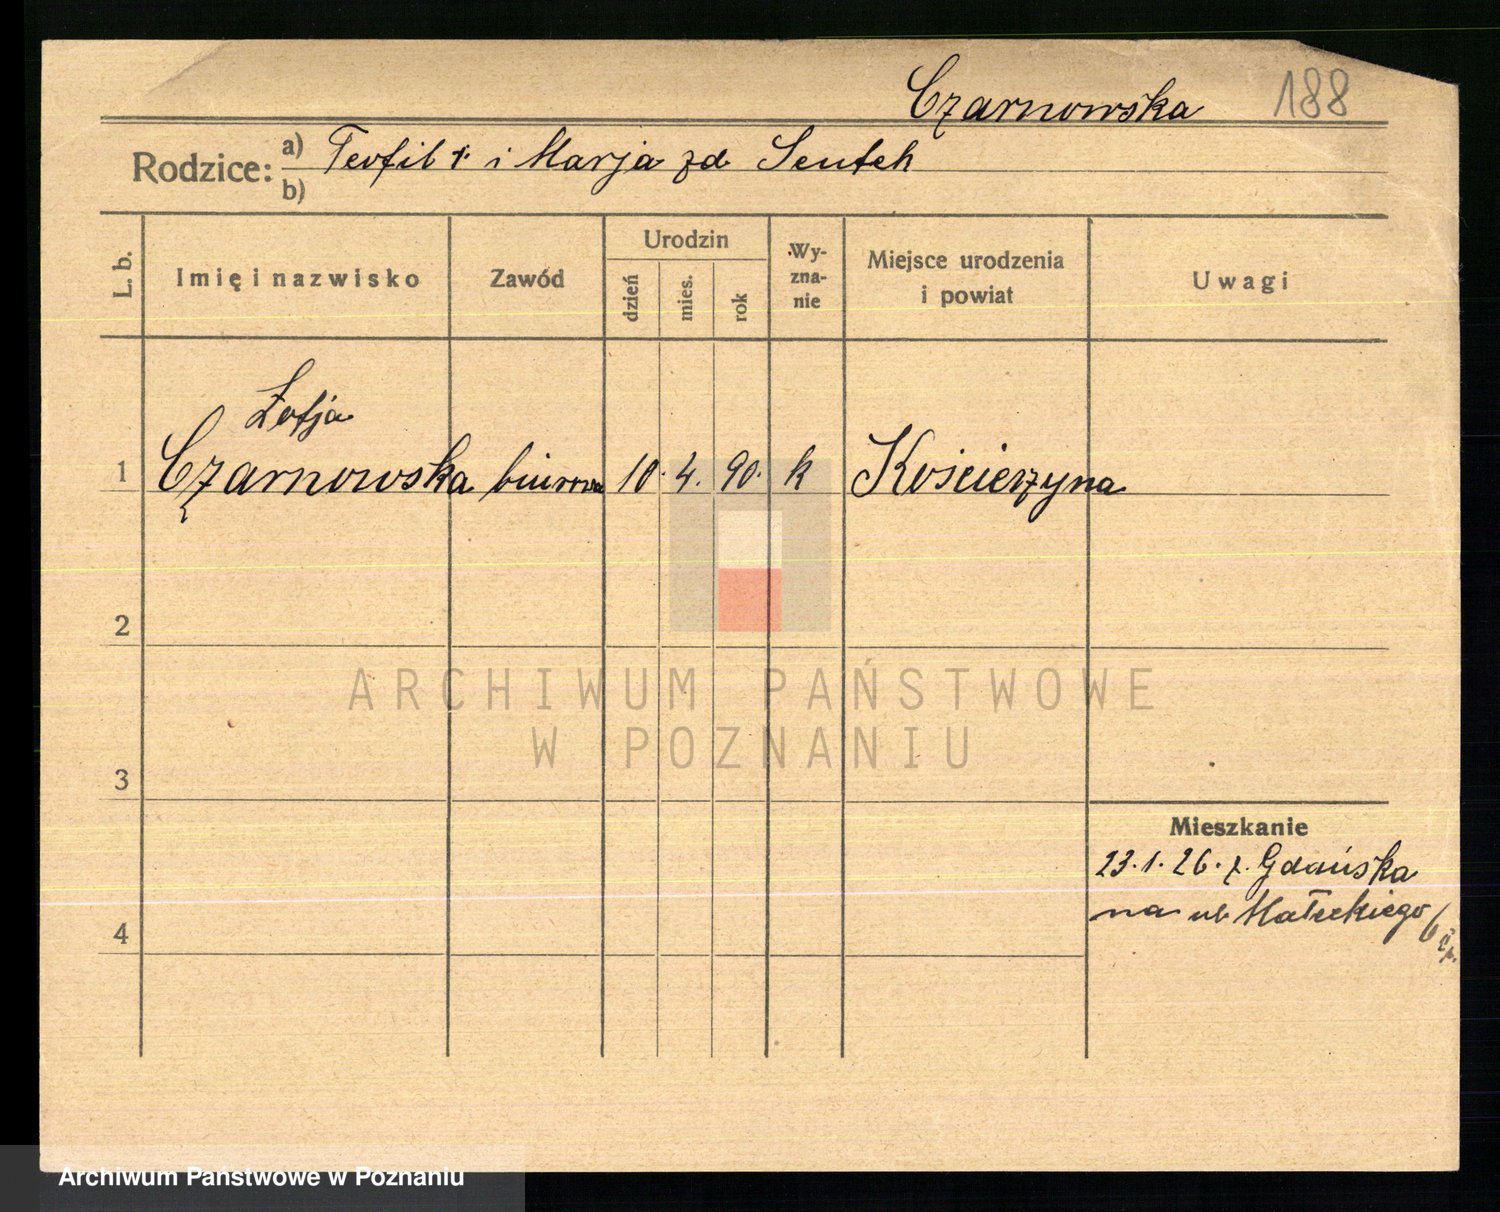 Czarnowska 188
Rodzice: a) Teofil i Marja zd
b)
L. b.
Imię i nazwisko
Zawód
Urodzin
dzień
mies.
rok
Wy-
zna-
nie
Miejsce urodzenia
i powiat
Uwagi
Zofja
1 Czarnowska biurowa 10. 4. 90. k Kościerzyna
2
3
Mieszkanie
23.1.26. z. Gdańska
na ul Małeckiego
4
ARCHIWUM PAŃSTWOWE
W POZNANIU
Archiwum Państwowe w Poznaniu